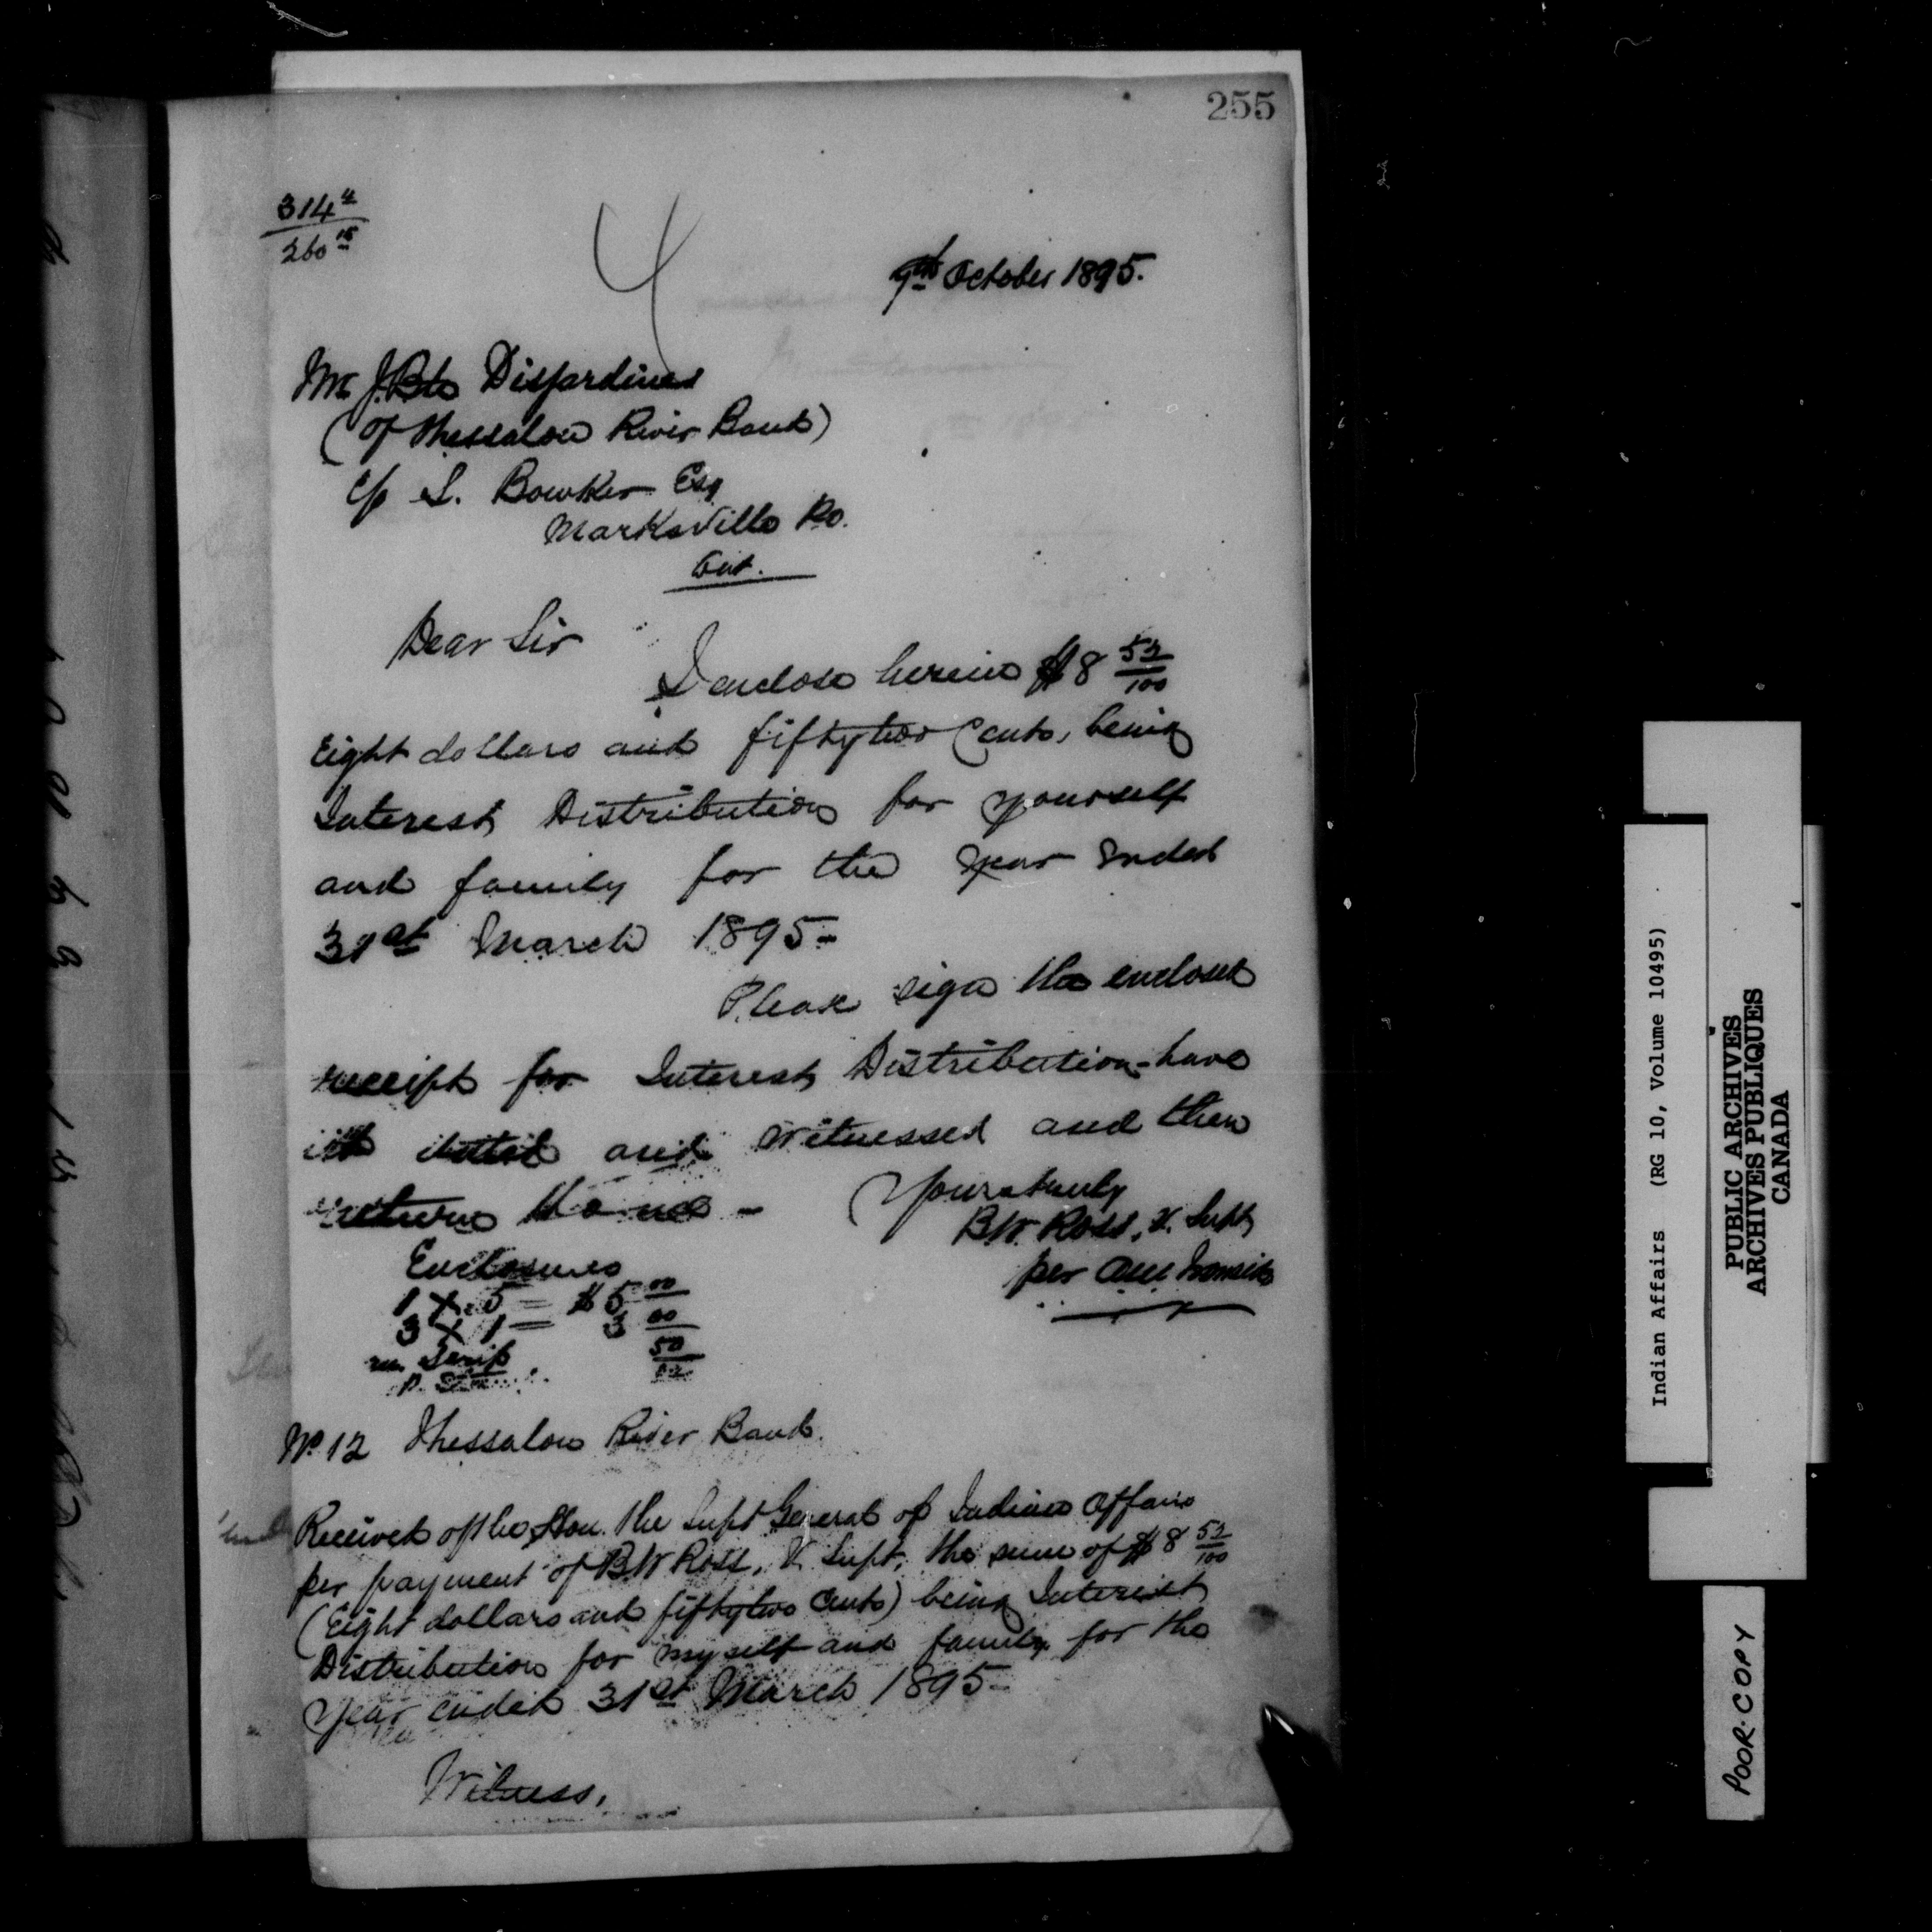 255
314 4
260 15
4
9th October 1895.
Mr J. Bte Disjardines
(of Thessalon River Band)
c/o S. Bowker Esq
Marksville P.O.
Ont.
Dear Sir
I enclose herein $8 52/100
Eight dollars and fiftytwo Cents, being
Interest Distribution for yourself
and family for the Year Ended
31st March 1895-
Please sign the enclosed
receipt for Interest Distribution - have
it dated and witnessed and then
return to me -
Yours truly
B W. Ross, V. Supt
per
Enclosures
1 X 5 = $5 00
3 X 1 = 3 00
Scrip 50
02
No 12 Thessalon River Band.
Received of the Hon. the Supt General of Indian Affairs
per payment of B W Ross, V. Supt, the sum of $8 52/100
(Eight dollars and fiftytwo Cents) being Interest
Distribution for myself and family for the
Year ended 31st March 1895-
Witness,
Indian Affairs (RG 10, Volume 10495)
PUBLIC ARCHIVES
ARCHIVES PUBLIQUES
CANADA
POOR COPY